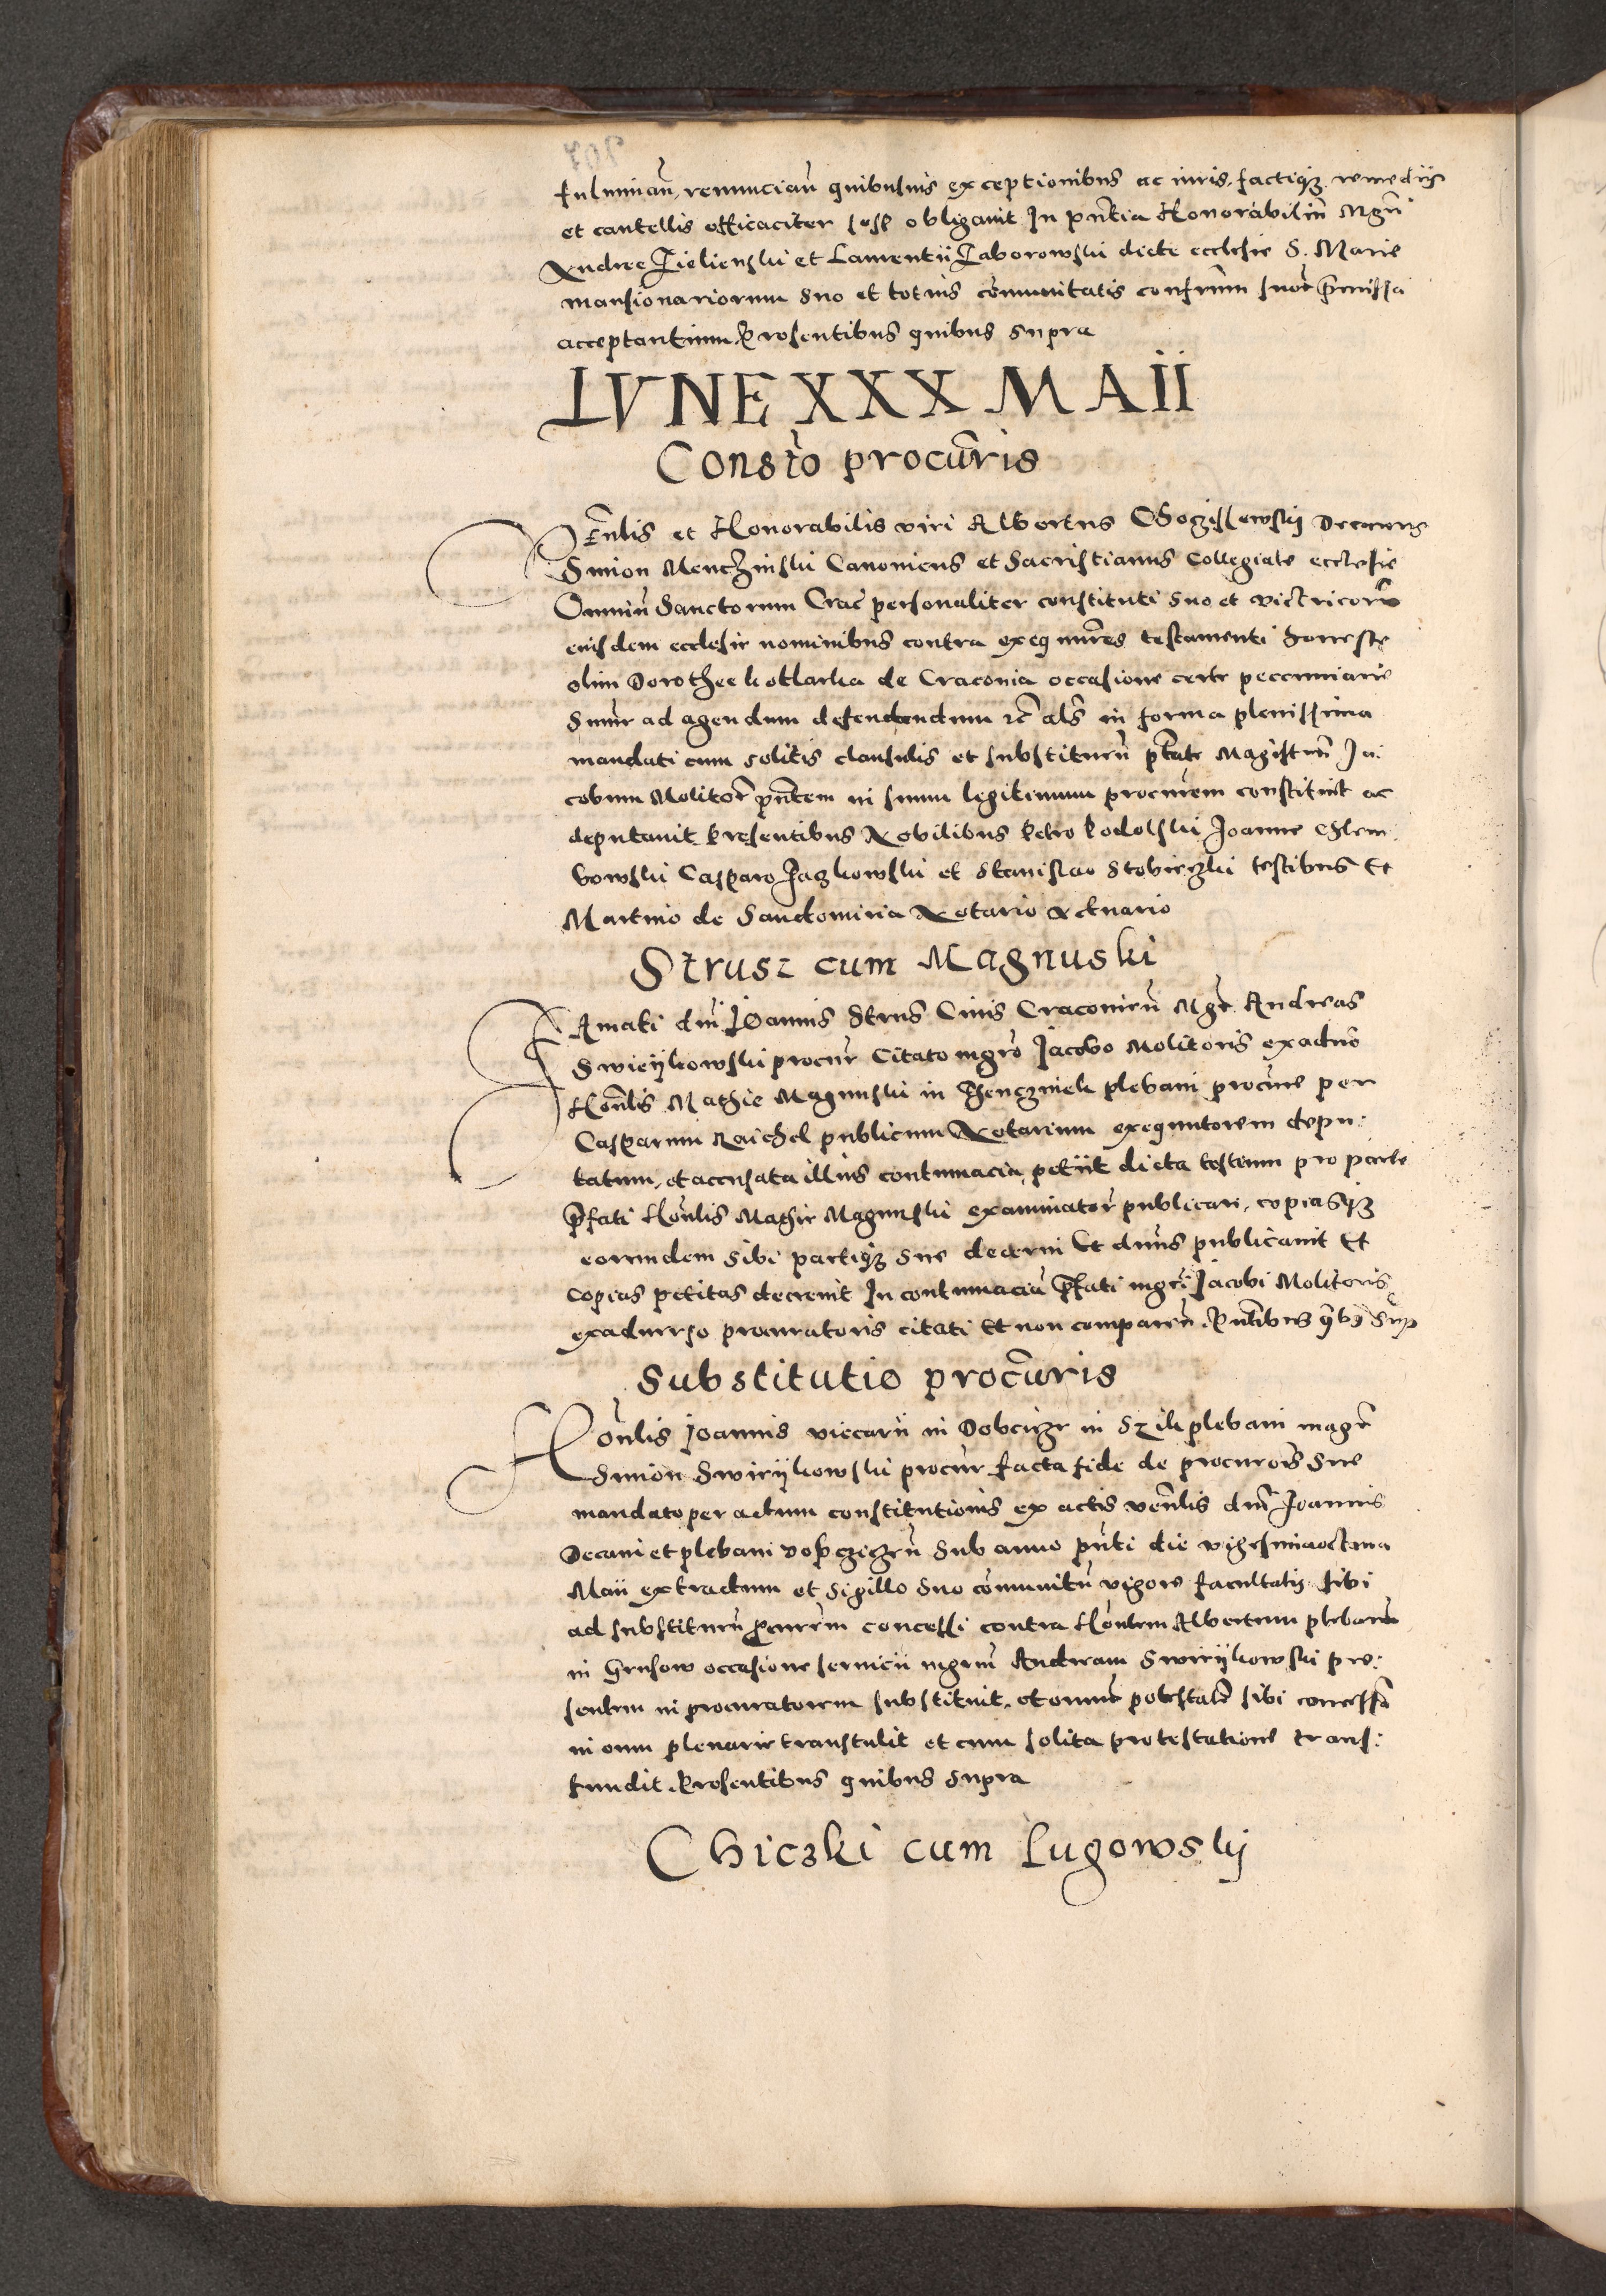 fulminan̄ renuncian̄ quibusuis exceptionibus ac iuris factiqʒ remediis
et cautellis efficaciter sese obligauit In pn̄tia Honorabiliū Mgr̄i
Andree Zielienski et Laurentii Zaborowski dicte ecclesie S. Marie
mansionariorum suo et totius cōmunitatis confrūm suor̄ p̄missa
acceptantium Presentibus quibus supra
LVNE XXX MAII
Constō procūris
Vēnlis et Honorabilis viri Albertus Decanus
Simon Canonicus et Sacristianus Collegiate ecclesie
Omniū Sanctorum Crac̄ personaliter constituti suo et victricorū
eiusdem ecclesie nominibus contra exequūres testamenti honeste
olim Dorothee kotlarka de Craconia occasione certe peccuniarie
Summe ad agendum defendendum rc̄ als̄ in forma plenissima
mandati cum solitis clausulis et substituen̄ ptāte Magistrū Ja:
cobum Molitor̄ pn̄tem in suum legitimum procurem constituit ac
deputauit Presentibus Nobilibus Petro Podolski Joanne Chlem:
bowski Casparo Jazkowski et Stanislao testibus Et
Martino de Sandomiria Notario Actuario
Strusz cum Magnuski
Famati dn̄i Joannis Strus Ciuis Cracouien̄ Mgr̄ Andreas
Swieijkowski procur̄ Citato mgrō Jacobo Molitoris exaduō
Honlis Mathie Magnuski in Thenczinek plebani procure per
Casparum Raichel publicum Notarium exequutorem depu:
tatum, et accusata illius contumacia petiit dicta testium pro parte
p̄fati Honlis Mathie Magnuski examinator̄ publicari, copiasqʒ
eorundem sibi partiqʒ sue decerni Et dn̄us publicauit Et
copias petitas decreuit In contumaciā p̄fati mgri Jacobi Molitoris
exaduerso procuratoris citati Et non comparen̄ Pn̄tibus qb̄9 sup̄
Substitutio procūris
Honlis Joannis vicarii in Dobczize in Szik plebani magr̄
Simon Swieijkowski procur̄ facta fide de procurōis sue
mandato per actum constitutionis ex actis vēnlis dn̄i Joannis
Decani et plebani Dopczizen̄ Sub anno pn̄ti die vigesimaoctaua
Maii extractum et sigillo suo cōmunitū vigore facultatis sibi
ad substituen̄ procurēm concessi contra Honlem Albertum plebanū
in Grusow occasione seruicii mgrm̄ Andream Swieijkowski pre:
sentem in procuratorem substituit, et omnē potestatē sibi concessā
in eum plenarie transtulit et cum solita protestatione trans:
fundit Presentibus quibus supra
Chiczki cum Lugowskij